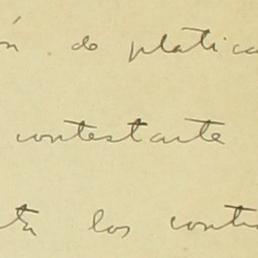 ón de platica
contestarte
ta los contr